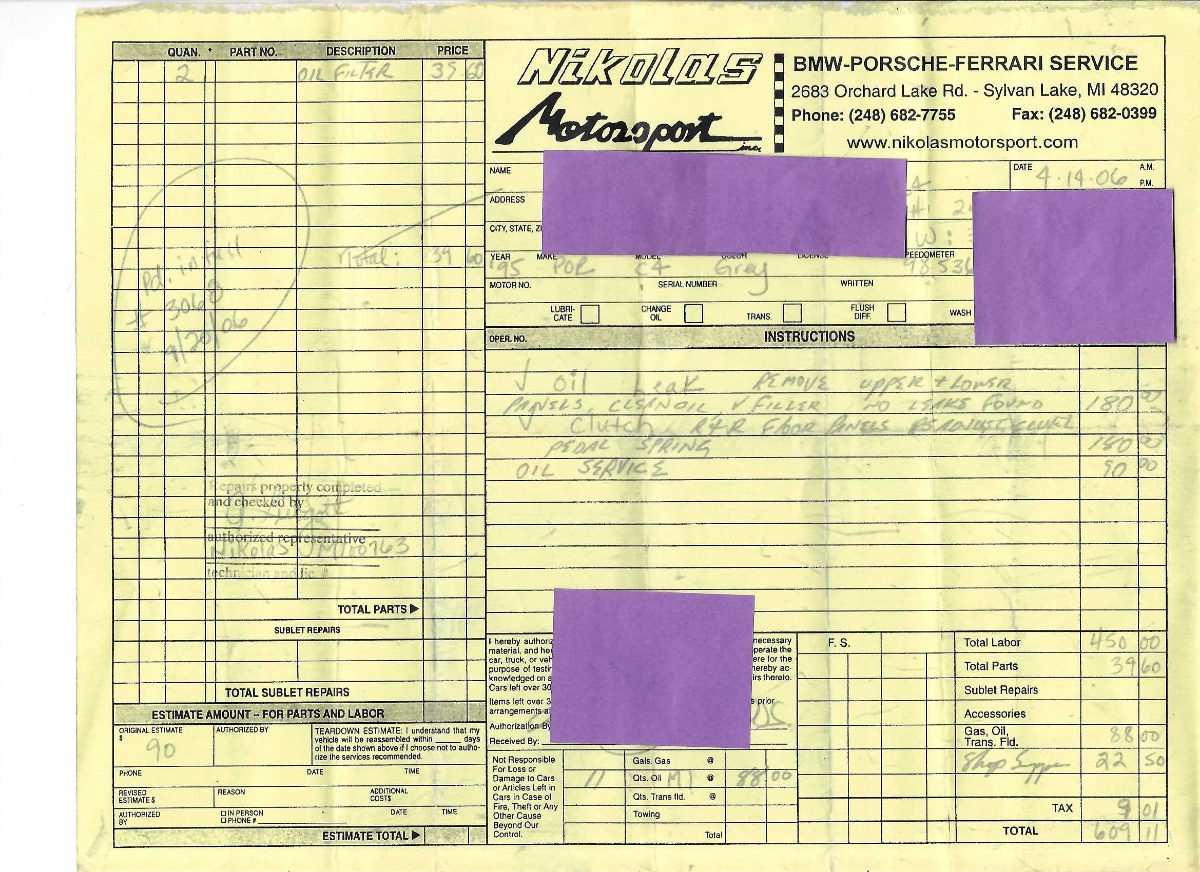 QUAN. * PART NO. DESCRIPTION PRICE
2 OIL FILTER 39 60
Total: 39 60
Pd. in full
# 3068
9/20/06
Repairs properly completed
and checked by
authorized representative
Nikolas
technician and lic. #
TOTAL PARTS ▶
SUBLET REPAIRS
TOTAL SUBLET REPAIRS
ESTIMATE AMOUNT – FOR PARTS AND LABOR
ORIGINAL ESTIMATE
$ 90
AUTHORIZED BY
TEARDOWN ESTIMATE: I understand that my
vehicle will be reassembled within ______ days
of the date shown above if I choose not to autho-
rize the services recommended.
PHONE DATE TIME
REVISED
ESTIMATE $
REASON
ADDITIONAL
COST$
AUTHORIZED
BY
☐ IN PERSON
☐ PHONE #
DATE TIME
ESTIMATE TOTAL ▶
Nikolas
Motorsport inc.
BMW-PORSCHE-FERRARI SERVICE
2683 Orchard Lake Rd. - Sylvan Lake, MI 48320
Phone: (248) 682-7755 Fax: (248) 682-0399
www.nikolasmotorsport.com
NAME
DATE 4-14-06 A.M.
P.M.
ADDRESS
CITY, STATE,
W:
YEAR MAKE
'95 POR C4 Grey 98536
MOTOR NO. SERIAL NUMBER WRITTEN
LUBRI-
CATE
CHANGE
OIL
TRANS.
FLUSH
DIFF.
WASH
OPER. NO. INSTRUCTIONS
✓ Oil Leak REMOVE UPPER + LOWER
PANELS, CLEAN OIL, ✓ FILLER NO LEAKS FOUND 180 00
✓ Clutch R&R FLOOR PANELS READJUST
PEDAL SPRING 180 00
OIL SERVICE 90 00
I hereby necessary
material, and operate the
car, truck, or for the
purpose of hereby ac-
knowledged on thereto.
Cars left over 30
Items left over prior
arrangements
Authorization By
Received By:
F. S.
Not Responsible
For Loss or
Damage to Cars
or Articles Left in
Cars in Case of
Fire, Theft or Any
Other Cause
Beyond Our
Control.
Gals. Gas @
11 Qts. Oil M1 @ 88 00
Qts. Trans fld. @
Towing
Total
Total Labor 450 00
Total Parts 39 60
Sublet Repairs
Accessories
Gas, Oil,
Trans. Fld. 88 00
Shop 22 50
TAX 9 01
TOTAL 609 11